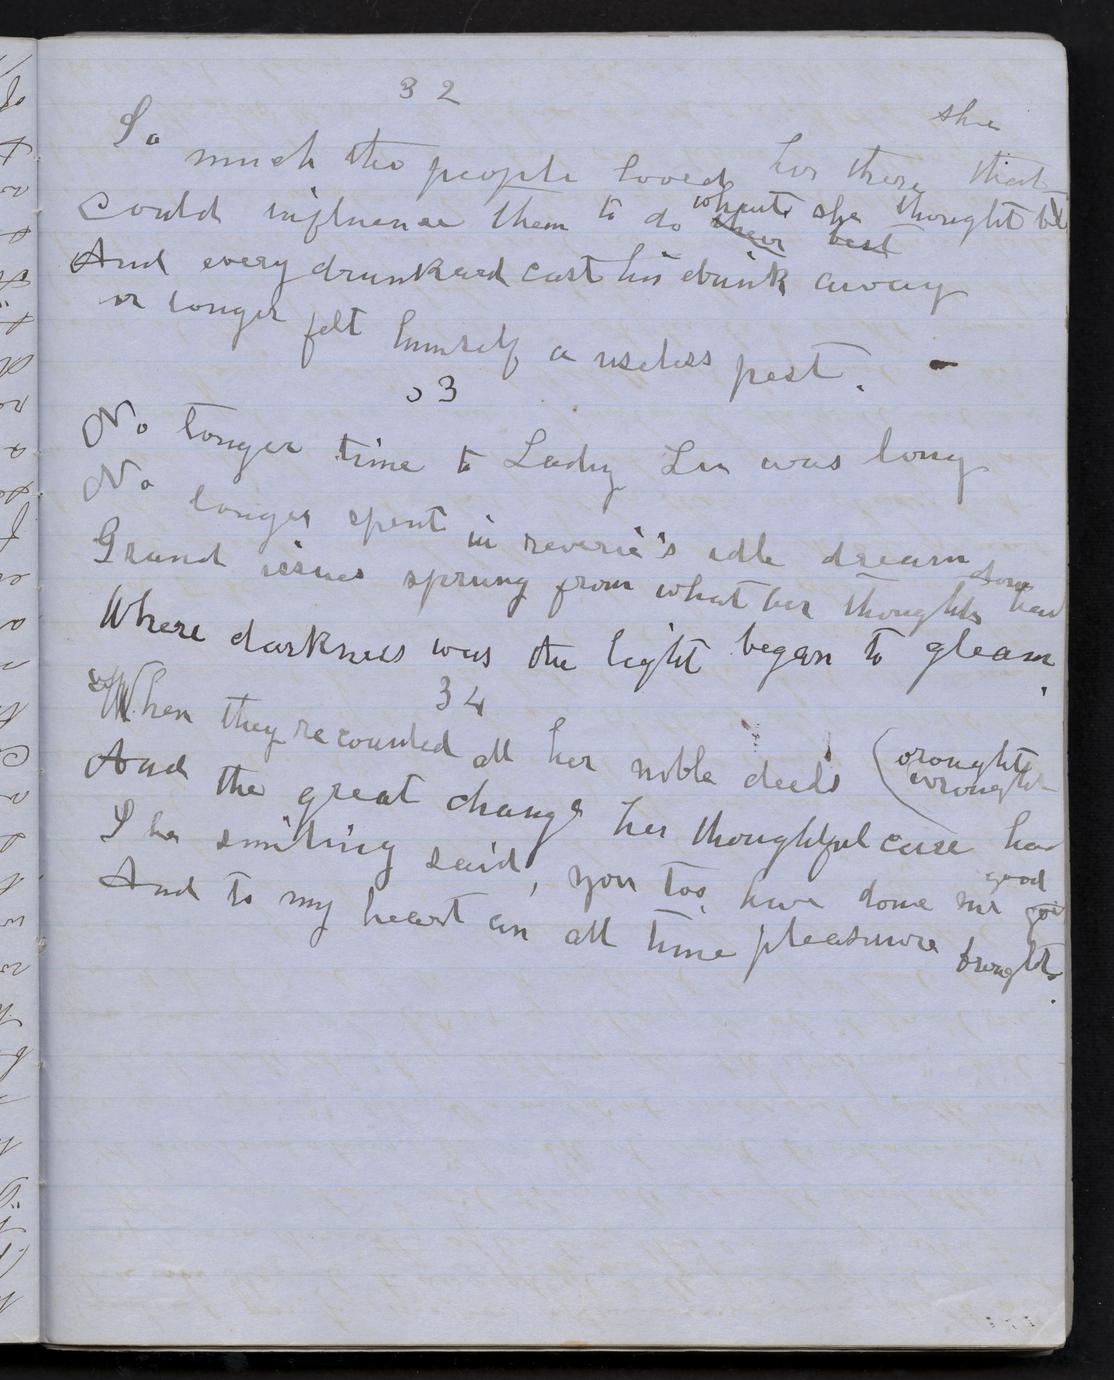 32
she
So much the people loved her there that
Could influence them to do what she thought
their best
And every drunkard cast his drink away
or longer felt himself a useless pest.
33
No longer time to Lady Lee was long
No longer spent in reverie's idle dream
Grand issues sprung from what her thoughts had
done
Where darkness was the light began to gleam.
34
When they recounted all her noble deeds (brought
wrought
And the great change her thoughtful care had
She smiling said, you too, have done me
good
And to my heart an all time pleasure brought.